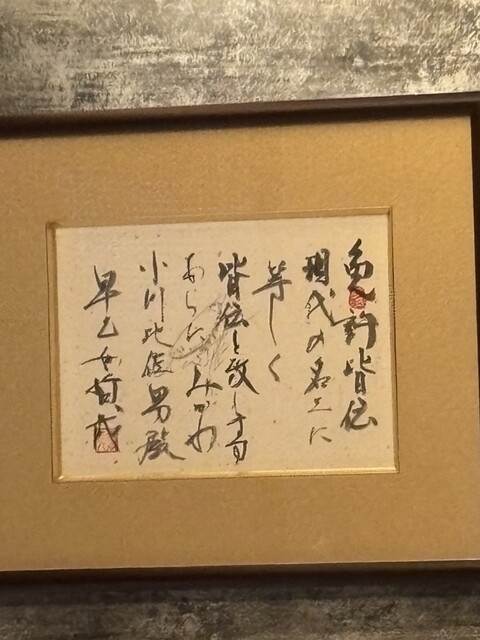 免許皆伝
現代の名工に
等しく
皆伝と致します
あらたみかわ
小川比佐男殿
早乙女哲哉